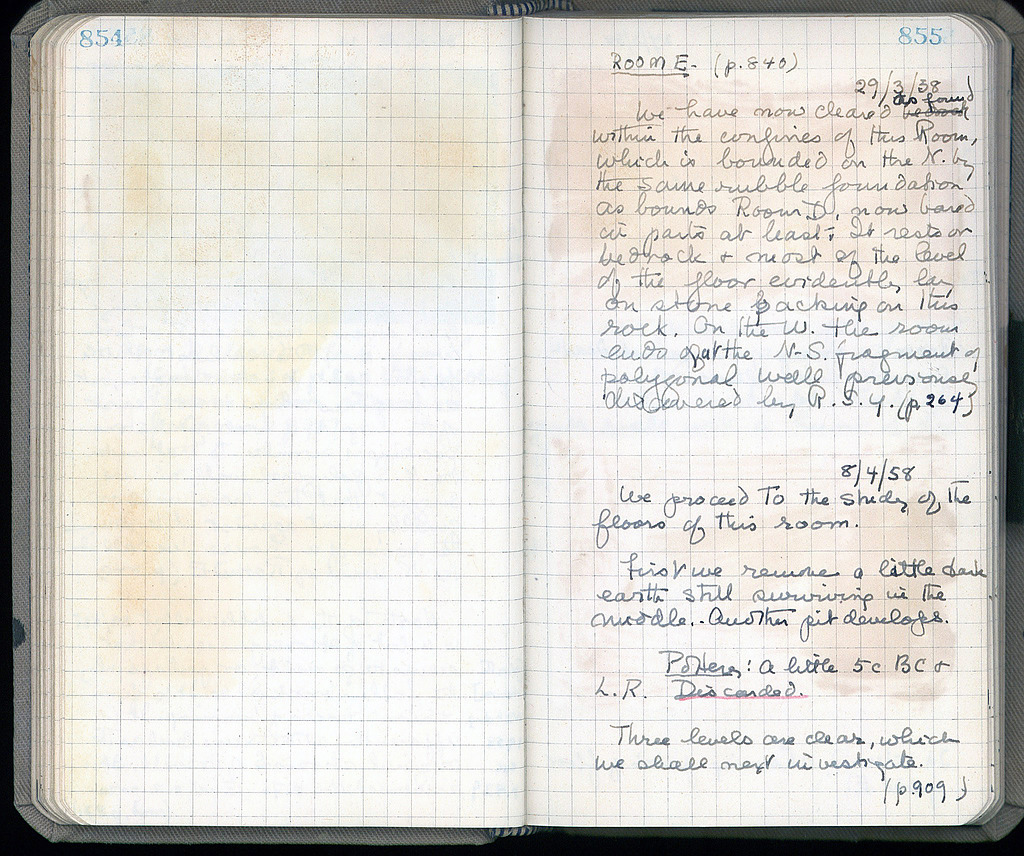 854
855
ROOM E. (p. 840)
29/3/58
as found
We have now cleared bedrock
within the confines of this Room,
which is bounded on the N. by
the same rubble foundation
as bounds Room D, now bared
in parts at least. It rests on
bedrock & most of the level
of the floor evidently lay
on stone packing on this
rock. On the W. the room
ends at the N-S. fragment of
polygonal wall previously
discovered by R.S.Y. (p. 264)
8/4/58
We proceed to the study of the
floors of this room.
First we remove a little dark
earth still surviving in the
middle. - Another pit develops.
Pottery: a little 5c BC &
L.R. Discarded.
Three levels are clear, which
we shall next investigate.
(p. 909)